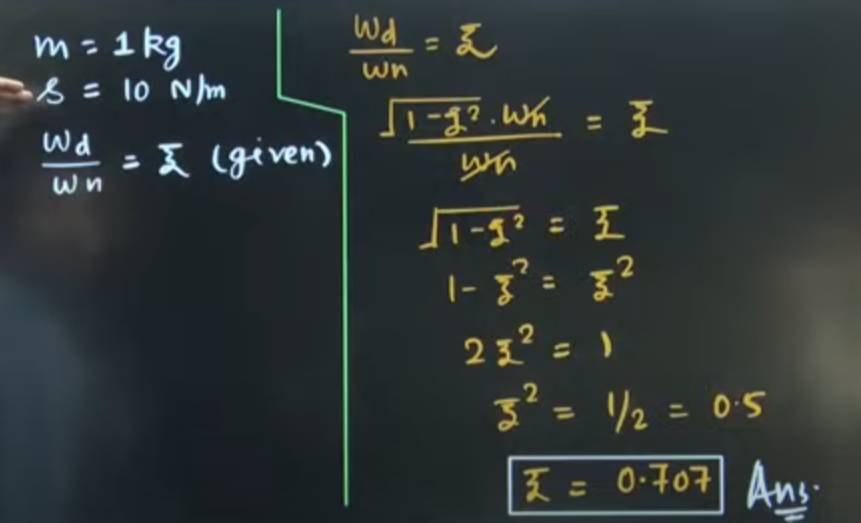 m = 1 kg
s = 10 N/m
ωd/ωn = ξ (given)
ωd/ωn = ξ
√1-ξ² . ωn/ωn = ξ
√1-ξ² = ξ
1 - ξ² = ξ²
2ξ² = 1
ξ² = 1/2 = 0.5
ξ = 0.707 Ans.